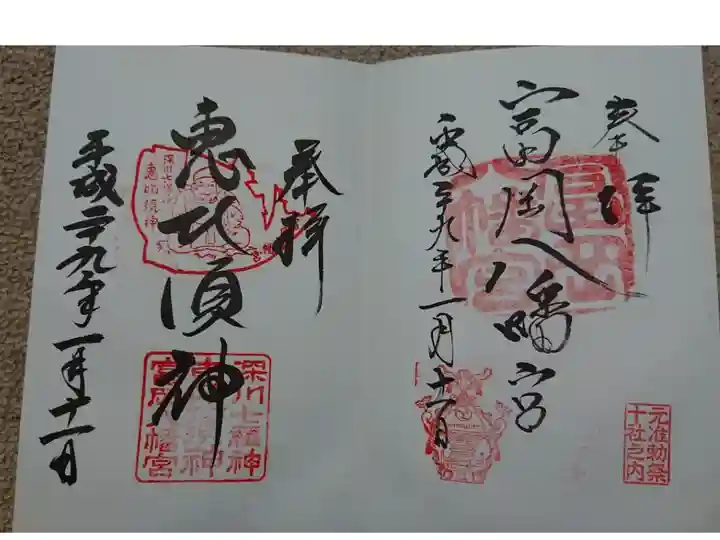 奉拝
富岡八幡宮
平成二十九年一月十一日
元准勅祭
十社之内
奉拝
恵比須神
平成二十九年一月十一日
恵比須神
深川七福神
富岡八幡宮